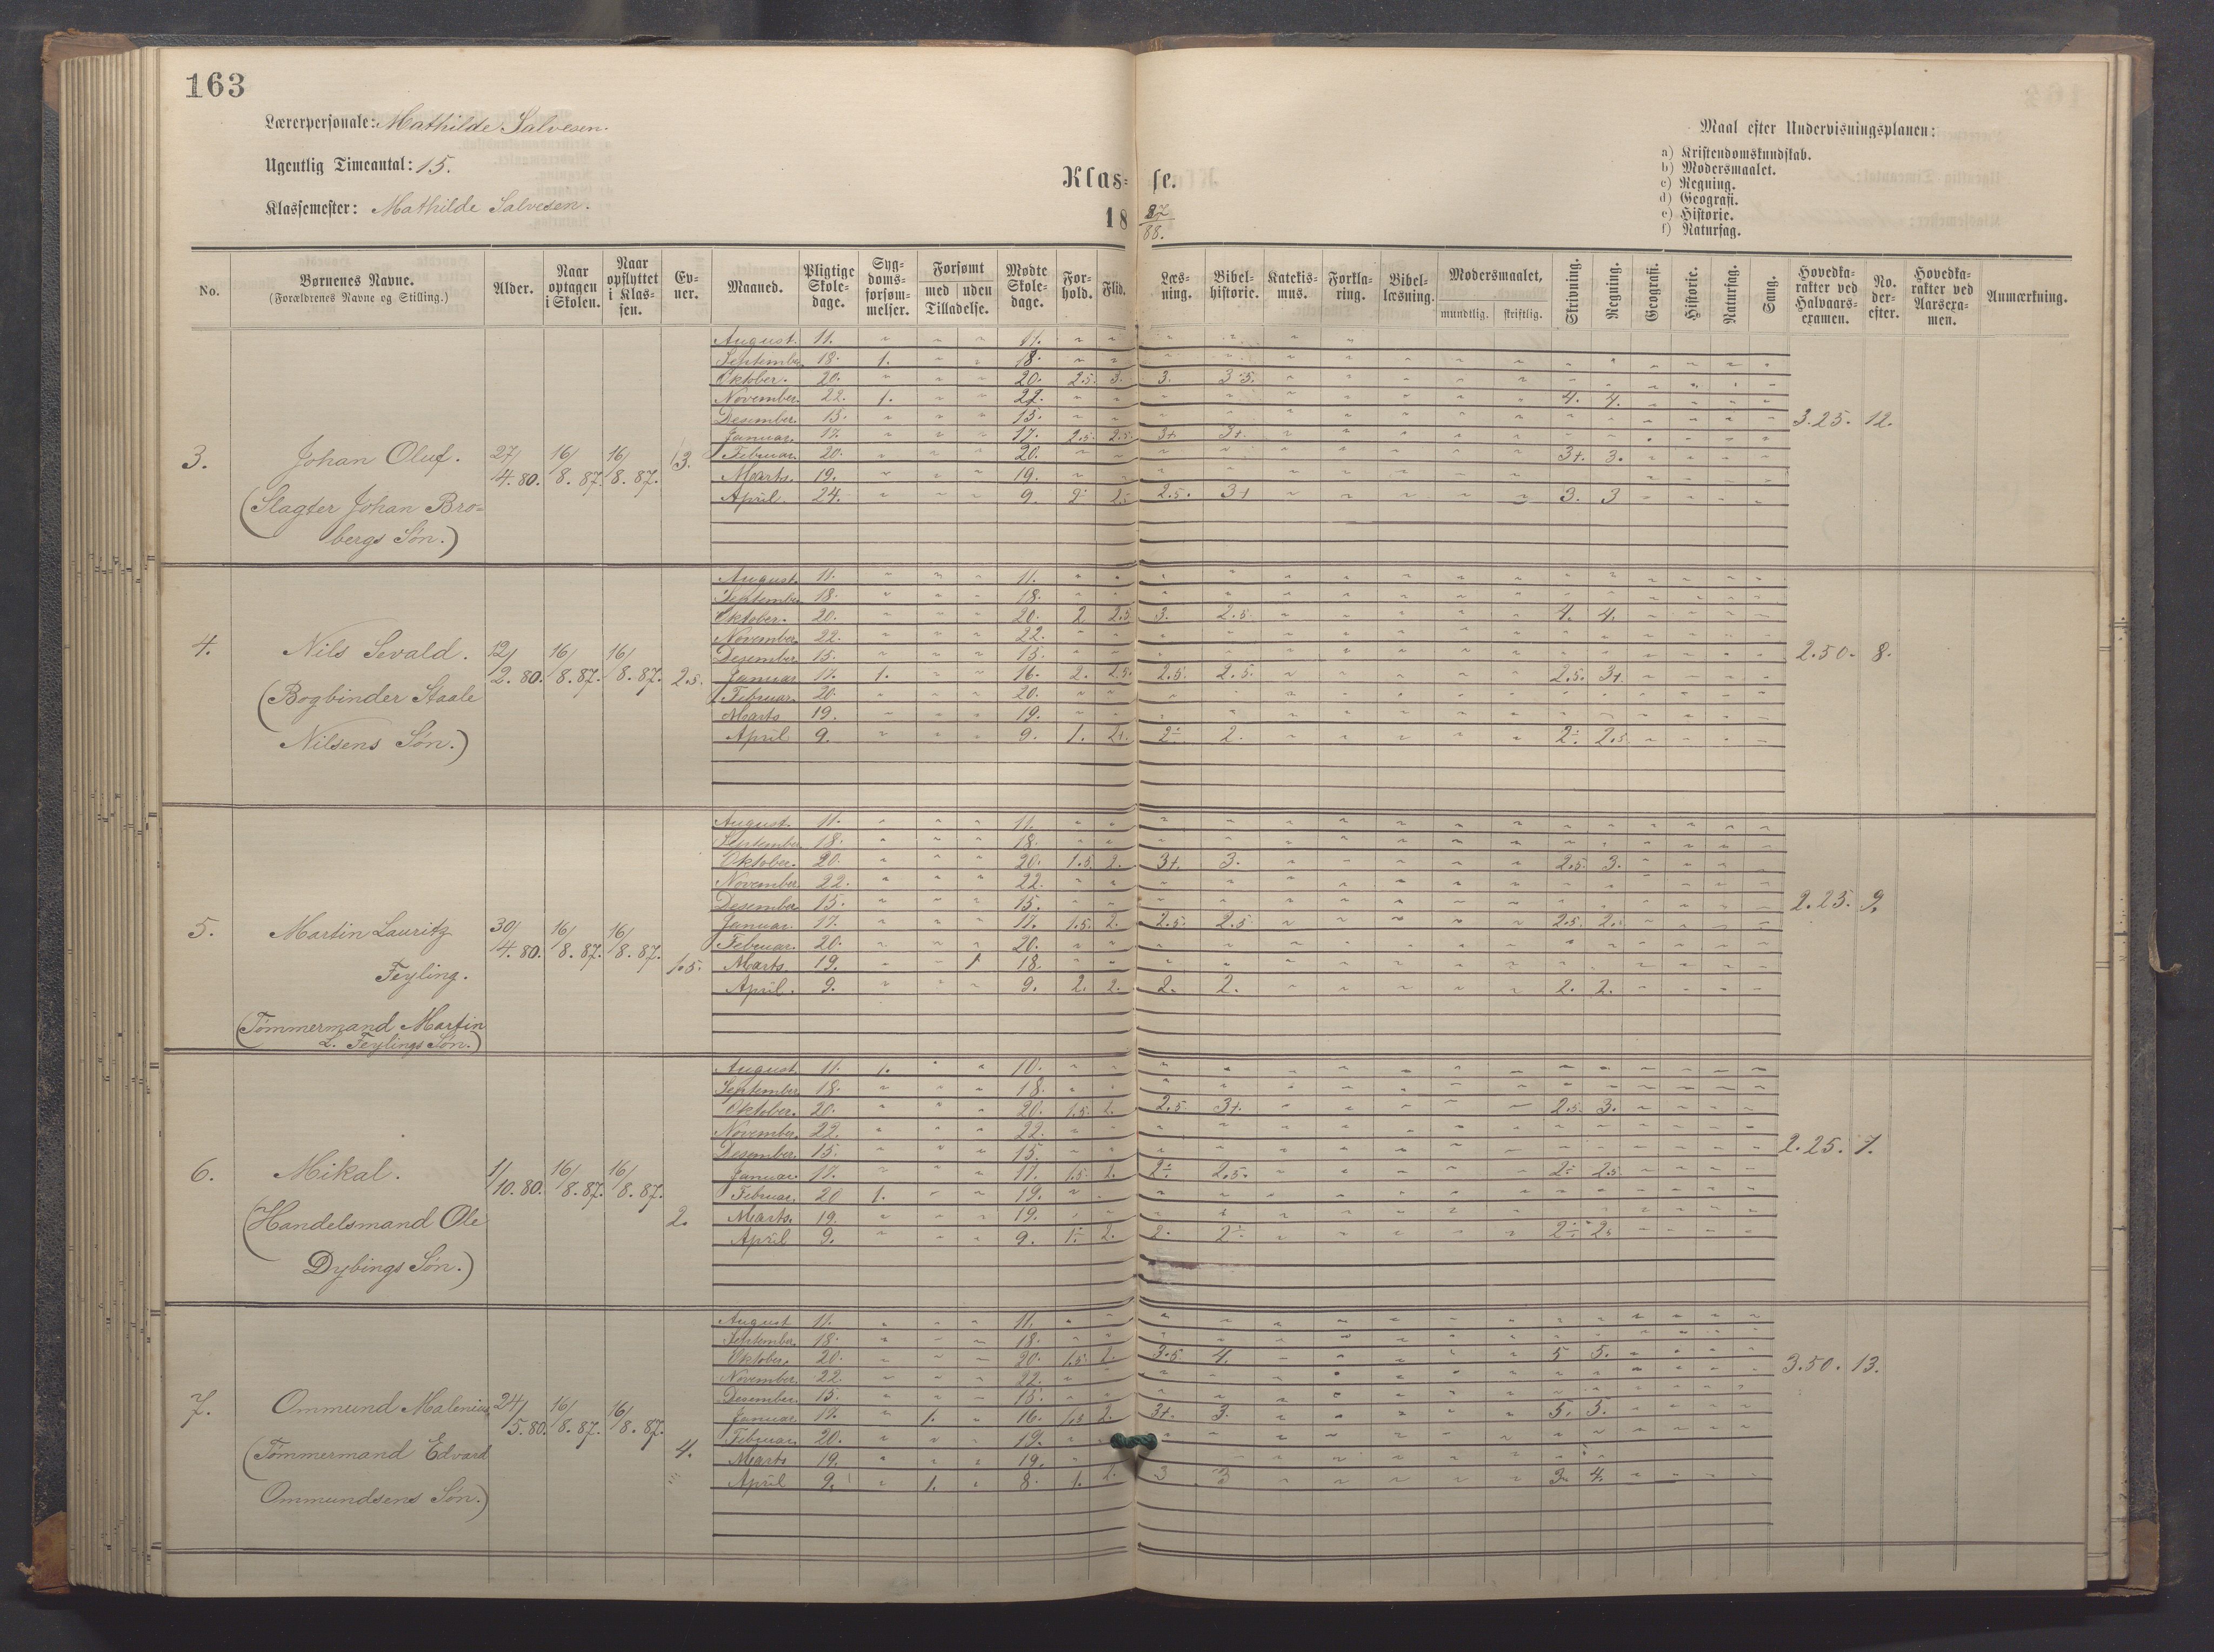 163
Lærerpersonale: Mathilde Salvesen.
Ugentlig Timeantal: 15.
Klassemester: Mathilde Salvesen.
Klas- se.
18 87/88.
Maal efter Undervisningsplanen:
a) Kristendomskundskab.
b) Modersmaalet.
c) Regning.
d) Geografi.
e) Historie.
f) Naturfag.
No. | Børnenes Navne. (Forældrenes Navne og Stilling.) | Alder. | Naar optagen i Skolen. | Naar opflyttet i Klassen. | Evner. | Maaned. | Pligtige Skoledage. | Sygdomsforsømmelser. | Forsømt med uden Tilladelse. | Mødte Skoledage. | Forhold. | Flid. | Læsning. | Bibelhistorie. | Katekismus. | Forklaring. | Bibellæsning. | Modersmaalet, mundtlig. skriftlig. | Skrivning. | Regning. | Geografi. | Historie. | Naturfag. | Sang. | Hovedkarakter ved Halvaarsexamen. | No. derefter. | Hovedkarakter ved Aarsexamen. | Anmærkning.
3. Johan Oluf. 27/4.80. 16/8.87. 16/8.87. 3. 3.25. 12.
(Slagter Johan Bro=
bergs Søn.)
August. 11. 11.
September 18. 1. 18.
Oktober. 20. 20. 2.5. 3. 3. 3.5.
November. 22. 1. 22. 4. 4.
Desember. 15. 15.
Januar. 17. 17. 2.5. 2.5. 3+. 3+.
Februar. 20. 20. 3+. 3.
Marts. 19. 19.
April. 24. 9. 2 2.5 2.5. 3+ 3. 3
4. Nils Sevald. 12/2.80. 16/8.87. 16/8.87. 2.5. 2.50. 8.
(Bogbinder Staale
Nilsens Søn.)
August. 11. 11.
September 18. 18.
Oktober. 20. 20. 2 2.5 3. 2.5. 4. 4.
November 22. 22.
Desember 15. 15.
Januar 17. 1. 16. 2. 1.5. 2.5. 2.5. 2.5. 3+
Februar. 20. 20.
Marts 19. 19.
April 9. 9. 1. 2+. 2÷ 2. 2÷ 2.5
5. Martin Lauritz 30/4.80. 16/8.87. 16/8.87. 1.5. 2.25. 9.
Feyling.
(Tømmermand Martin
L. Feylings Søn.)
August. 11. 11.
September 18. 18.
Oktober. 20. 20. 1.5. 2. 3+. 3. 2.5. 3.
November 22. 22.
Desember 15. 15.
Januar. 17. 17. 1.5. 2. 2.5. 2.5. 2.5. 2.5
Februar. 20. 20.
Marts. 19. 1 18.
April. 9. 9. 2. 2. 2. 2. 2. 2.
6. Mikal. 1/10.80. 16/8.87. 16/8.87. 2. 2.25. 7.
(Handelsmand Ole
Dybings Søn.)
August. 11. 1. 10.
September 18. 18.
Oktober. 20. 20. 1.5. 2. 2.5. 3+. 2.5. 3.
November. 22. 22.
Desember. 15. 15.
Januar. 17. 17. 1.5. 2. 2÷ 2.5. 2÷ 2.5
Februar. 20 1. 19.
Marts. 19. 19.
April 9. 9. 1÷ 2. 2. 2÷ 2÷ 2.5
7. Ommund Malenius, 24/5.80. 16/8.87. 16/8.87. 4. 3.50. 13.
(Tømmermand Edvard
Ommundsens Søn.)
August 11. 11.
September. 18. 18.
Oktober. 20. 20. 1.5. 2. 3.5. 4. 5 5.
November. 22. 22.
Desember. 15. 15.
Januar 17. 1. 16. 1.5 2. 3+. 3. 5. 5.
Februar. 20. 19.
Marts 19. 19.
April 9. 1. 8. 1. 2. 3 3 3. 4.